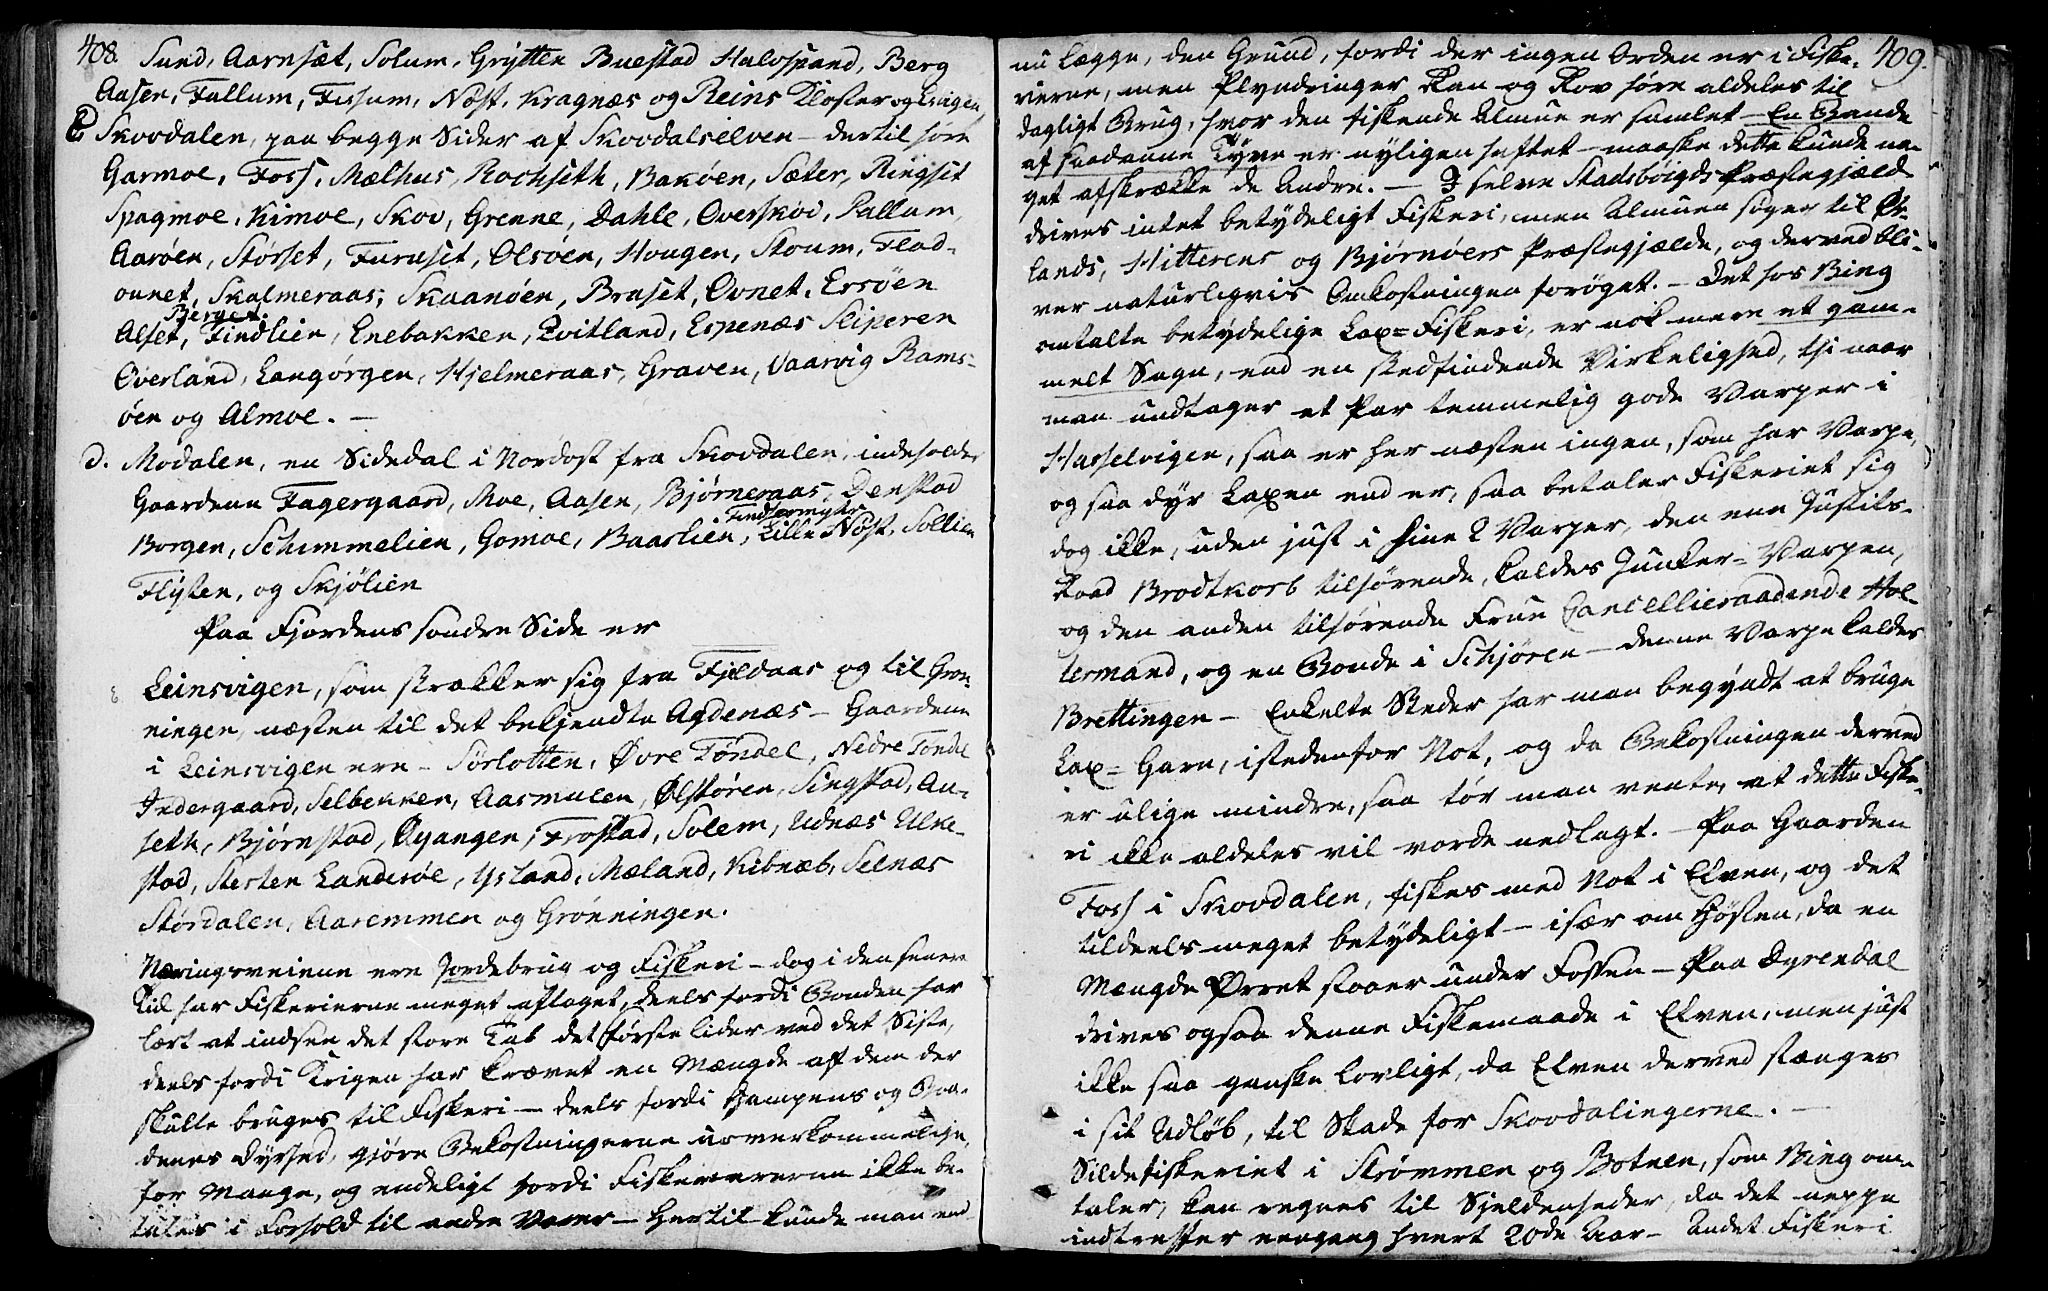 408. Sund, Aarnsæt, Solum, Grytten Buestad Halosstrand, Berg
Aasen, Fallum, Fissum, Nøst, Kragnæs og Reins Kloster og Leirvigen
C. Skovdalen, paa begge Sider af Skovdalselven – dertil høre
Garmoe, Foss, Mælhus, Rochseth, Bakøen, Sæter, Ringset
Spagmoe, Kimoe, Skov, Grenne, Dahle, Overskov, Pallum,
Aarøen, Størset, Furuset, Olsøen, Hougen, Skoum, Flad-
ounet, Skalmeraas, Skaanøen, Braset, Ovnet, Ersøen
Berget.
Alset, Findlien, Enebakken, Qvitland, Espenæs Sliperen
Overland, Langørgen, Hjelmeraas, Graven, Vaarvig Rams-
øen og Almoe. –
d. Modalen, en Sidedal i Nordost fra Skovdalen, indeholder
Gaardene Fagergaard, Moe, Aasen, Bjørneraas, Denstad
Findsermyhr
Borgen, Schimmelien, Gomoe, Baarlien, Lille Nøst, Sollien
Flysten, og Skjølien
Paa Fjordens søndre Side er
Leinsvigen, som strækker sig fra Fjeldaas og til Grøn-
ningen, næsten til det bekjendte Agdenæs – Gaardene
i Leinsvigen ere – Sørlotten, Øvre Tøndel, Nedre Tøndel
Indergaard, Selbekken, Aasmulen, Ølstøren, Singstad, An-
seth, Bjørnstad, Øyangen, Frostad, Solem, Udnæs Ulke-
stad, Stersten Landerøe, Ysland, Mæland, Kibnæb, Selnæs
Størdalen, Aaremmen og Grønningen.
Næringsveiene ere Jordebrug og Fiskeri – dog i den senere
Tid har Fiskerierne meget aftaget, deels fordi Bonden har
lært at indsee det store Tab det første lider ved det Siste,
deels fordi Krigen har krævet en Mængde af dem der
skulle bruges til Fiskeri – deels fordi Hampens og Baa-
denes Dyrhed, gjøre Bekostningerne uoverkommelige,
for Mange, og endeligt fordi Fiskevarerne ikke be-
tales i Forhold til andre Varer – Hertil kunde man end-
409.
nu lægge, den Grund, fordi der ingen Orden er i Fiske-
rierne, men Plyndringer Ran og Rov høre aldeles til
dagligt Brug, hvor den fiskende Almue er samlet – En Bande
af saadanne Tyve er nyligen heftet – maaske dette kunde no-
get afskrække de Andre. – I selve Stadsbøigds Præstegjæld
drives intet betydeligt Fiskeri, men Almuen søger til Ør-
lands, Hitterens og Bjørnøers Præstegjælde, og derved bli-
ver naturligvis Omkostningen forøget. – Det hos Bing
omtalte betydelige Lax-Fiskeri, er nok mere et gam-
melt Sagn, end en stedfindende Virkelighed, thi naar
man undtager et Par temmelig gode Varper i
Hasselvigen, saa er her næsten ingen, som har Varpe,
og saa dyr Laxen end er, saa betaler Fiskeriet sig
dog ikke, uden just i hine 2 Varper, den ene Justits-
Raad Brodtkorb tilhørende, kaldes Junker-Varpen,
og den anden tilhørende Frue Cancellieraadinde Hol-
termand, og en Bonde i Schjøren – denne Varpe kaldes
Brettingen – Enkelte Steder har man begyndt at bruge
Lax-Garn, istedenfor Not, og da Bekostningen derved
er ulige mindre, saa tør man vente, at dette Fiske-
ri ikke aldeles vil vorde nedlagt. – Paa Gaarden
Foss i Skovdalen, fiskes med Not i Elven, og det
tildeels meget betydeligt – især om Høsten, da en
Mængde Ørret staaer under Fossen – Paa Dyrendal
drives ogsaa denne Fiskemaade i Elven, men just
ikke saa ganske lovligt, da Elven derved stænges
i sit Udløb, til Skade for Skovdalingerne. –
Sildefiskeriet i Strømmen og Botnen, som Bing om-
taler, kan regnes til Sjeldenheder, da det neppe
indtreffer eengang hvert 20de Aar – Andet Fiskeri